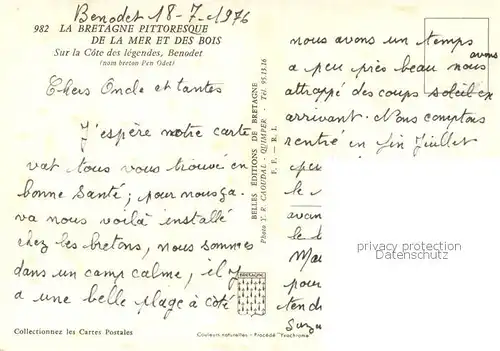 Benodet 18-7-1976
982 LA BRETAGNE PITTORESQUE
DE LA MER ET DES BOIS
Sur la Côte des légendes, Benodet
(nom breton Pen Odet)
Chers Oncle et tantes
J'espère notre carte
vat tous vous trouvé en
bonne Santé; pour nous ça.
va nous voilà installé
chez les bretons, nous sommes
dans un camp calme, il y
a une belle plage à côté
Collectionnez les Cartes Postales
BELLES ÉDITIONS DE BRETAGNE
Photo Y. R. CAOUDAL - QUIMPER - Tél. 95.13.16
F. F. - R. I.
BRETAGNE
Couleurs naturelles - Procédé "Yvochrome"
nous avons un temps
a peu près beau nous avons
attrappé des coups soleil ex
arrivant. Nous comptons
rentré en fin Juillet
avan
pour
tend
privacy protection
@VINTAGE